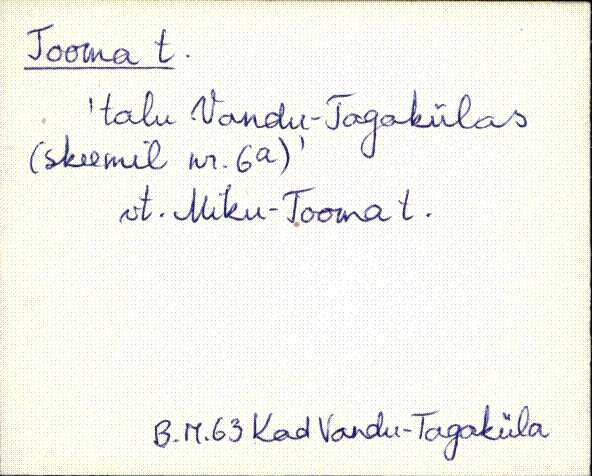 Tooma t.
'talu Vandu-Tagakülas
(skeemil nr. 6a)'
vt. Miku-Tooma t.
B.M.63 Kad Vandu-Tagaküla